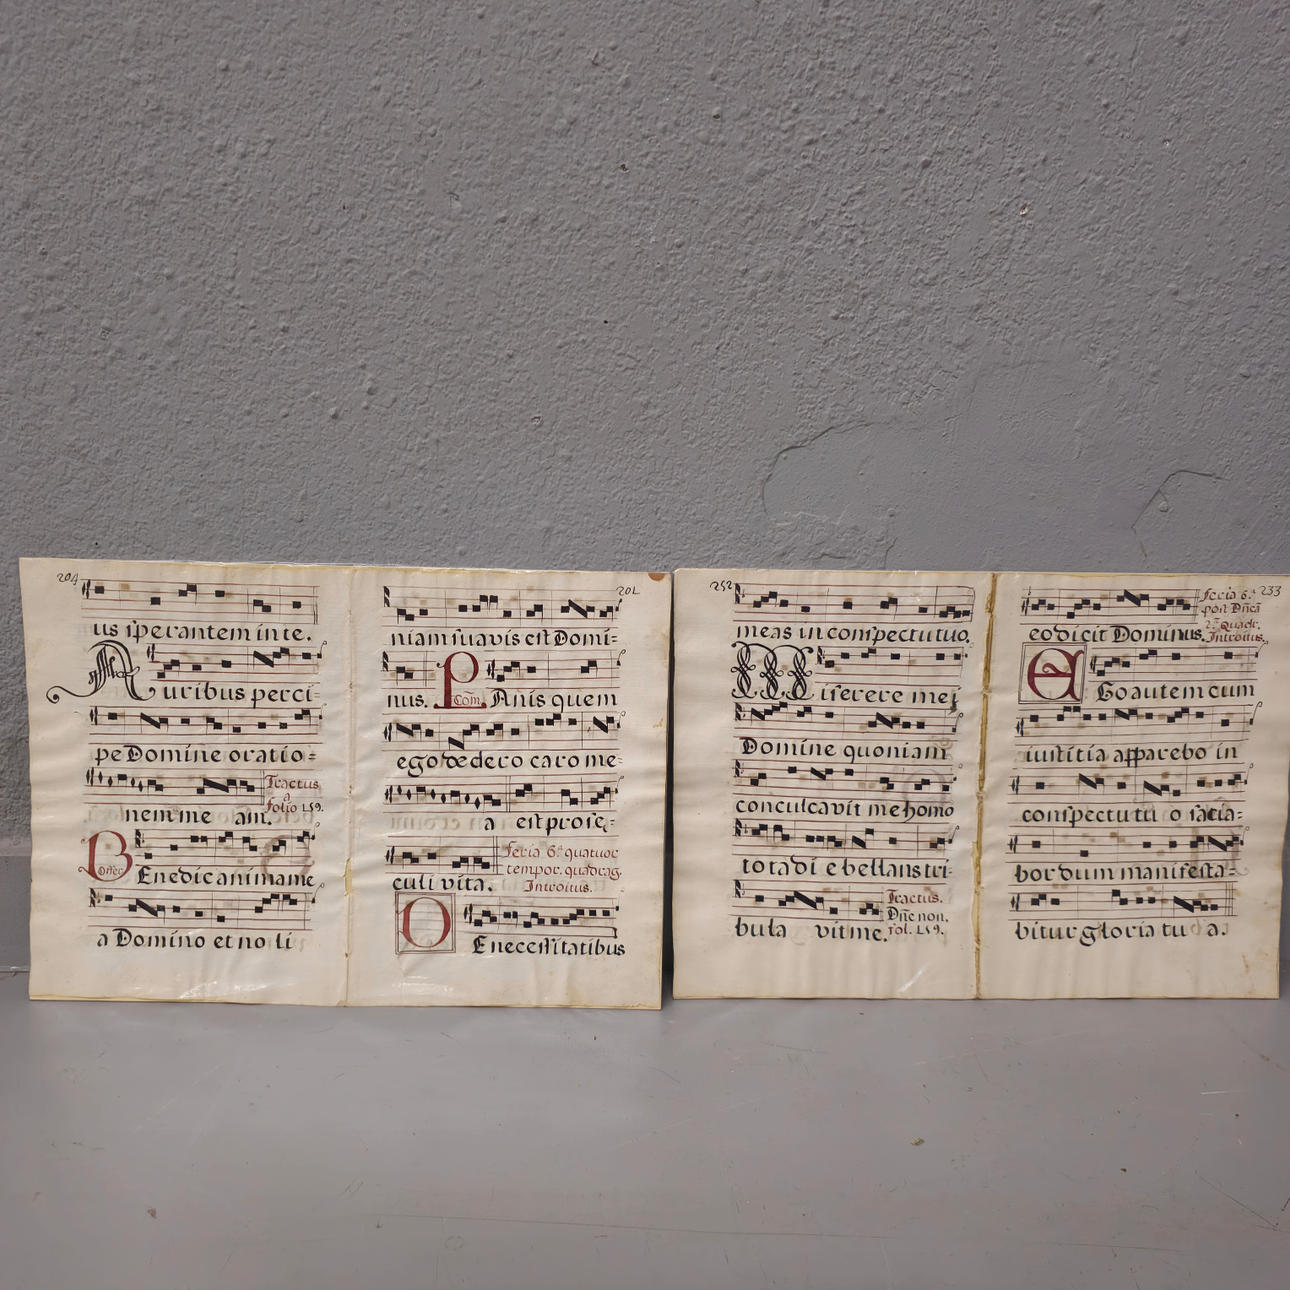 204
us sperantem in te.
Auribus perci=
pe Domine oratio=
Tractus
a
folio 159.
nem me am.
Offer.
BEnedic anima me
a Domino et no li
201
niam suavis est Domi=
nus. Com̃. PAnis quem
ego dedero caro me=
a est pro sę=
feria 6.ª quatuor
tempor. quadrag.
Introitus.
culi vita.
DE necessitatibus
252
meas in conspectu tuo.
Miserere mei
Domine quoniam
conculcavit me homo
tota di e bellans tri=
Tractus.
Dñe non.
fol. 159.
bula vit me.
233
feria 6.ª
post Dñcã
2.ª Quadr.
Introitus.
eo dicit Dominus.
EGo autem cum
iustitia apparebo in
conspectu tu o sacia=
bor dum manifesta=
bitur gloria tu a.